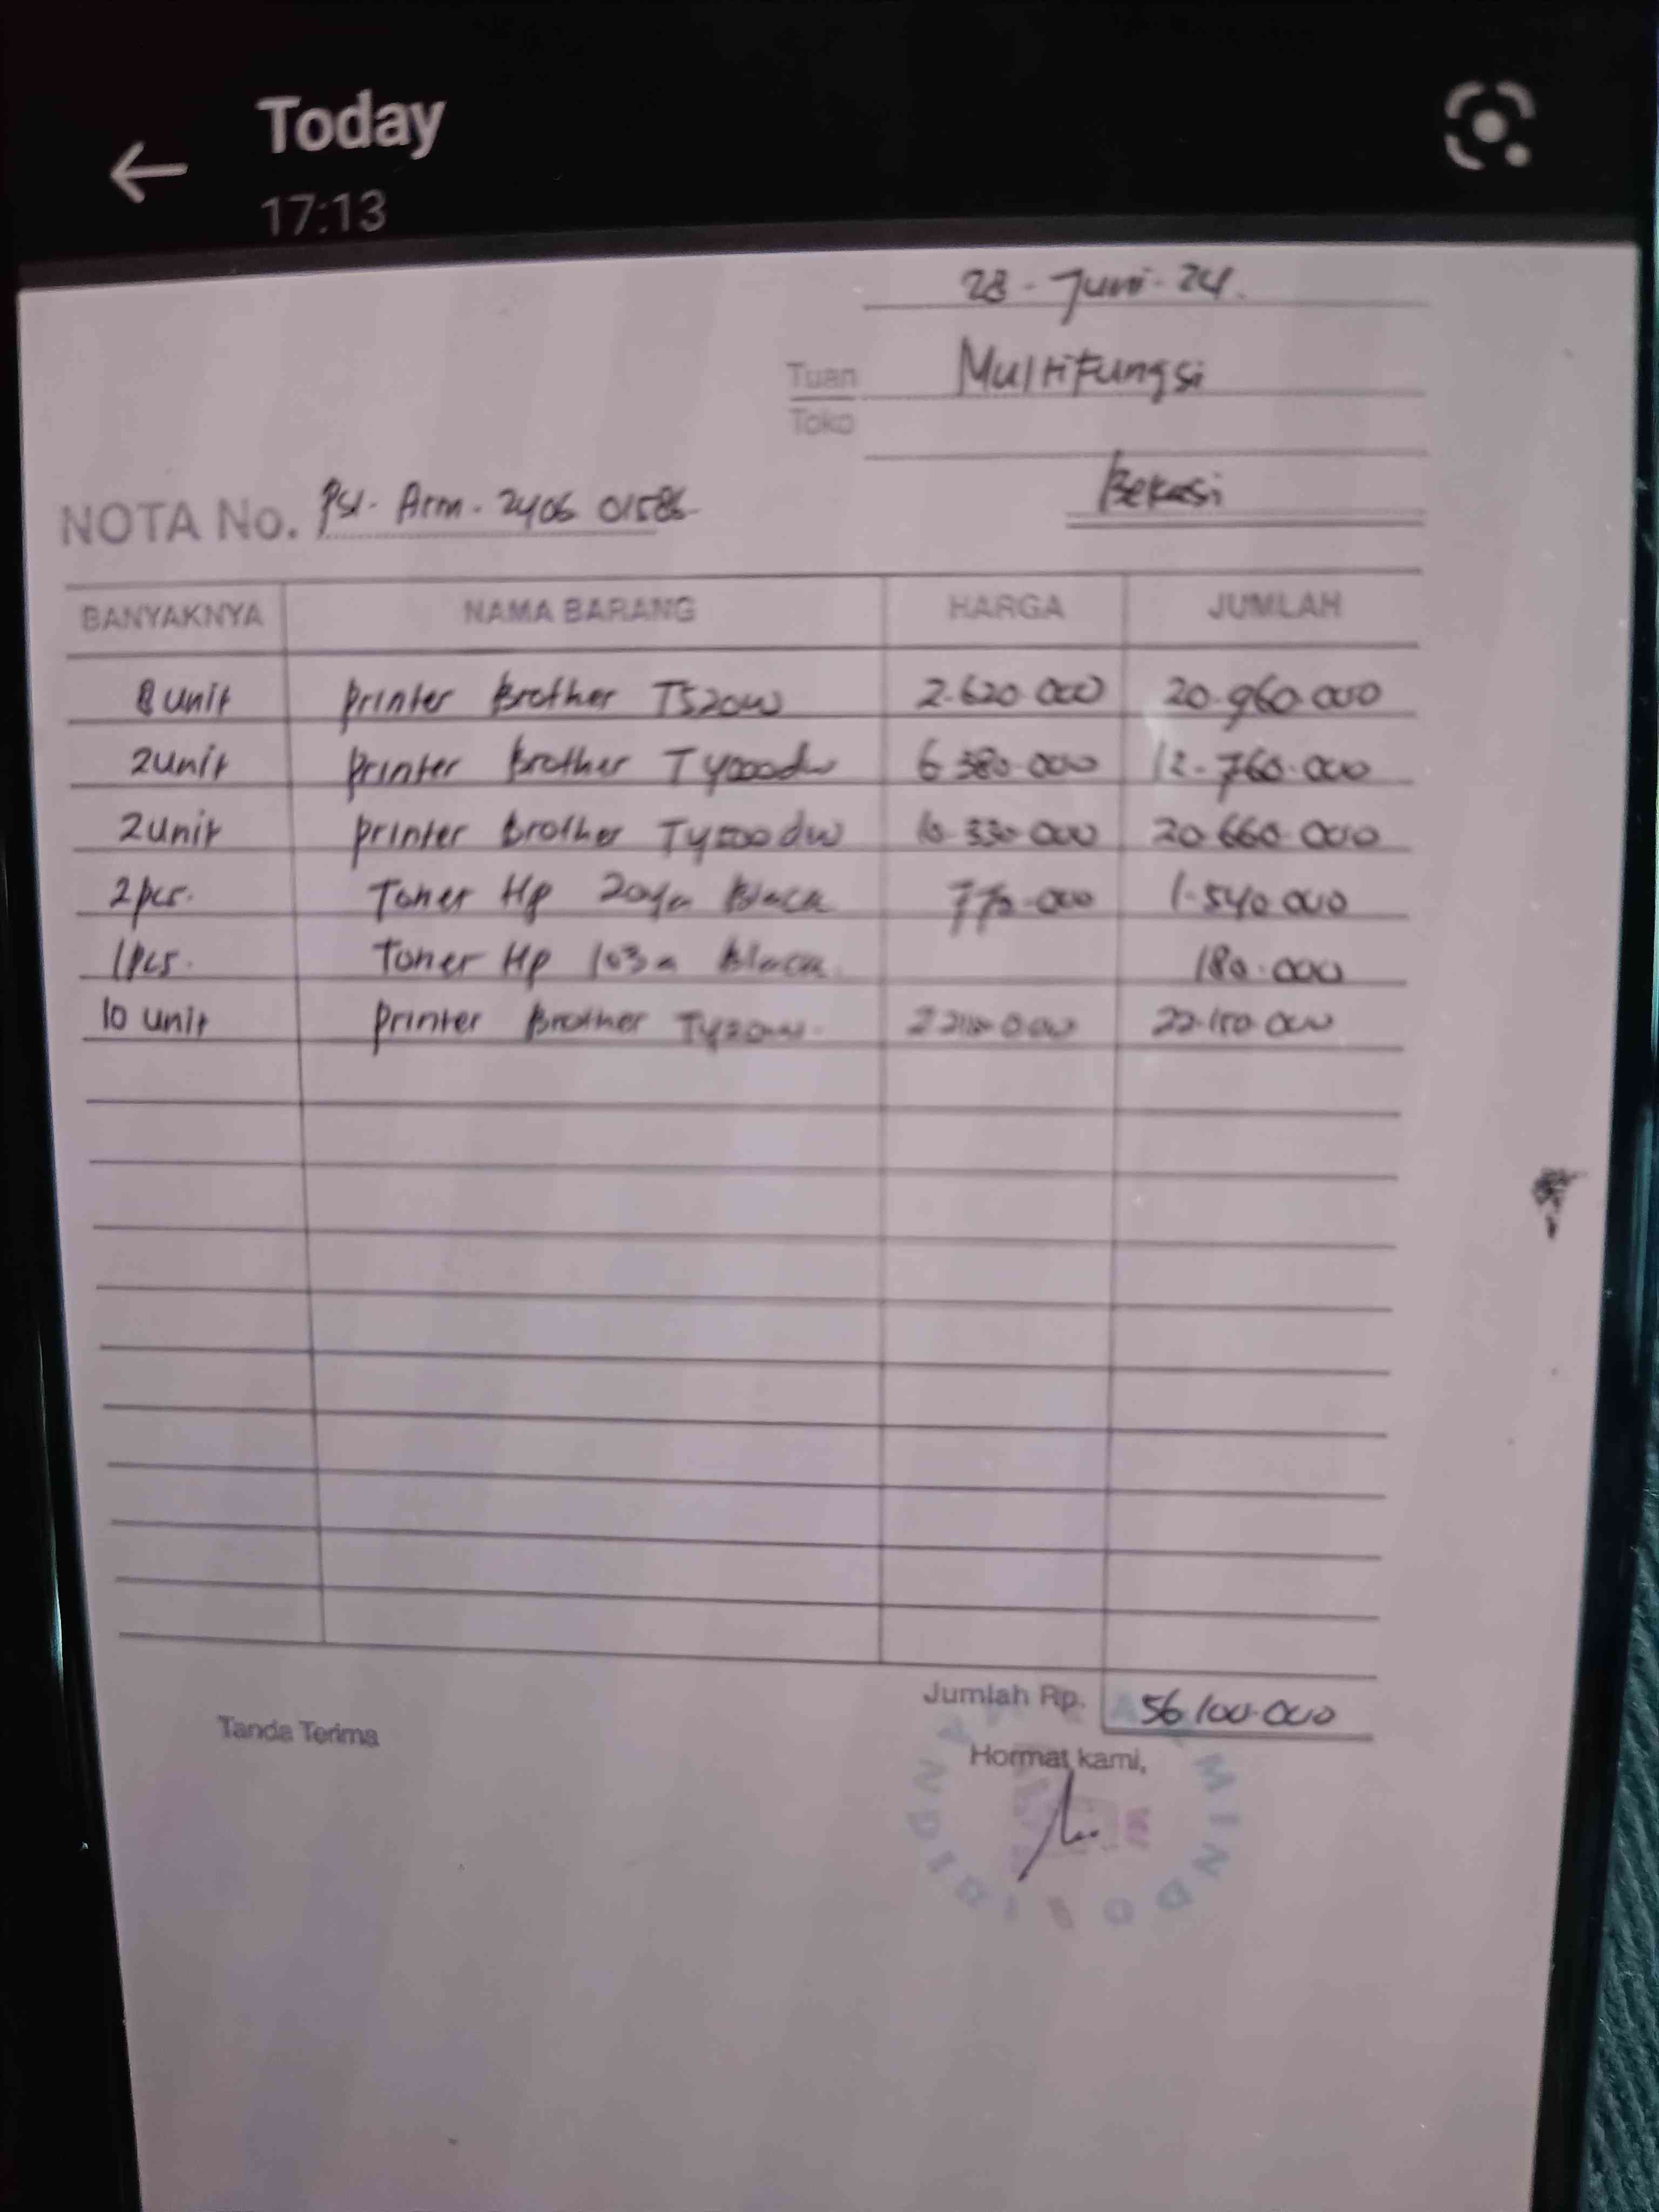 Today
17:13
28 - Juni - 24.
Tuan Multifungsi
Toko
Bekasi
NOTA No. Psl. Arm. 2406 01586
BANYAKNYA NAMA BARANG HARGA JUMLAH
8 unit Printer Brother T520w 2.620.000 20.960.000
2 unit Printer Brother T4000dw 6.380.000 12.760.000
2 unit Printer Brother T4500dw 10.330.000 20.660.000
2 pcs. Toner Hp Black 770.000 1.540.000
1 pcs. Toner Hp 103a Black 180.000
10 unit Printer Brother T420w.
Jumlah Rp. 56.100.000
Tanda Terima
Hormat kami,